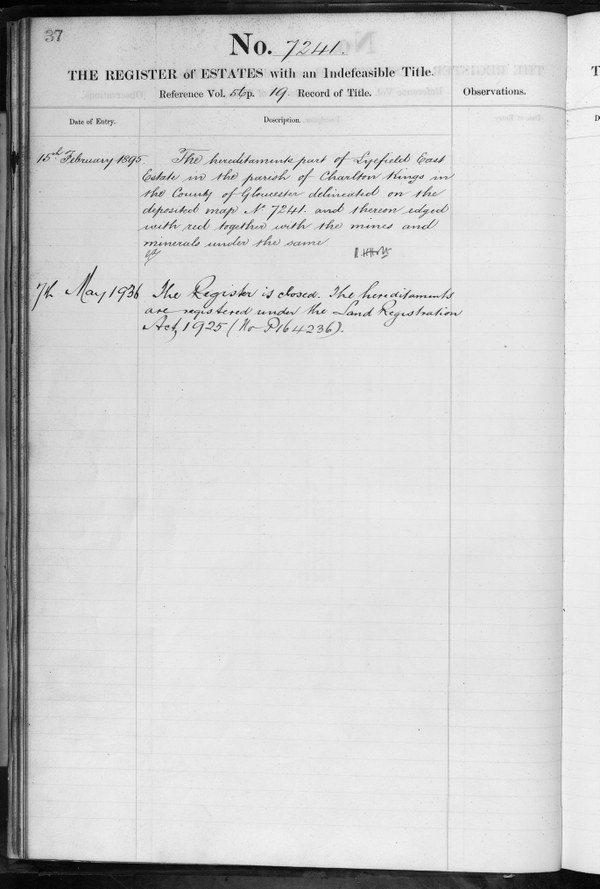 37
No. 7241.
THE REGISTER of ESTATES with an Indefeasible Title.
Reference Vol. 56 p. 19. Record of Title.
Observations.
Date of Entry.
Description.
15th February 1895
The hereditaments part of Lyefield East
Estate in the parish of Charlton Kings in
the County of Gloucester delineated on the
deposited map No 7241. and thereon edged
with red together with the mines and
minerals under the same.
7th May 1936
The Register is closed. The hereditaments
are registered under the Land Registration
Act, 1925 (No P164236).